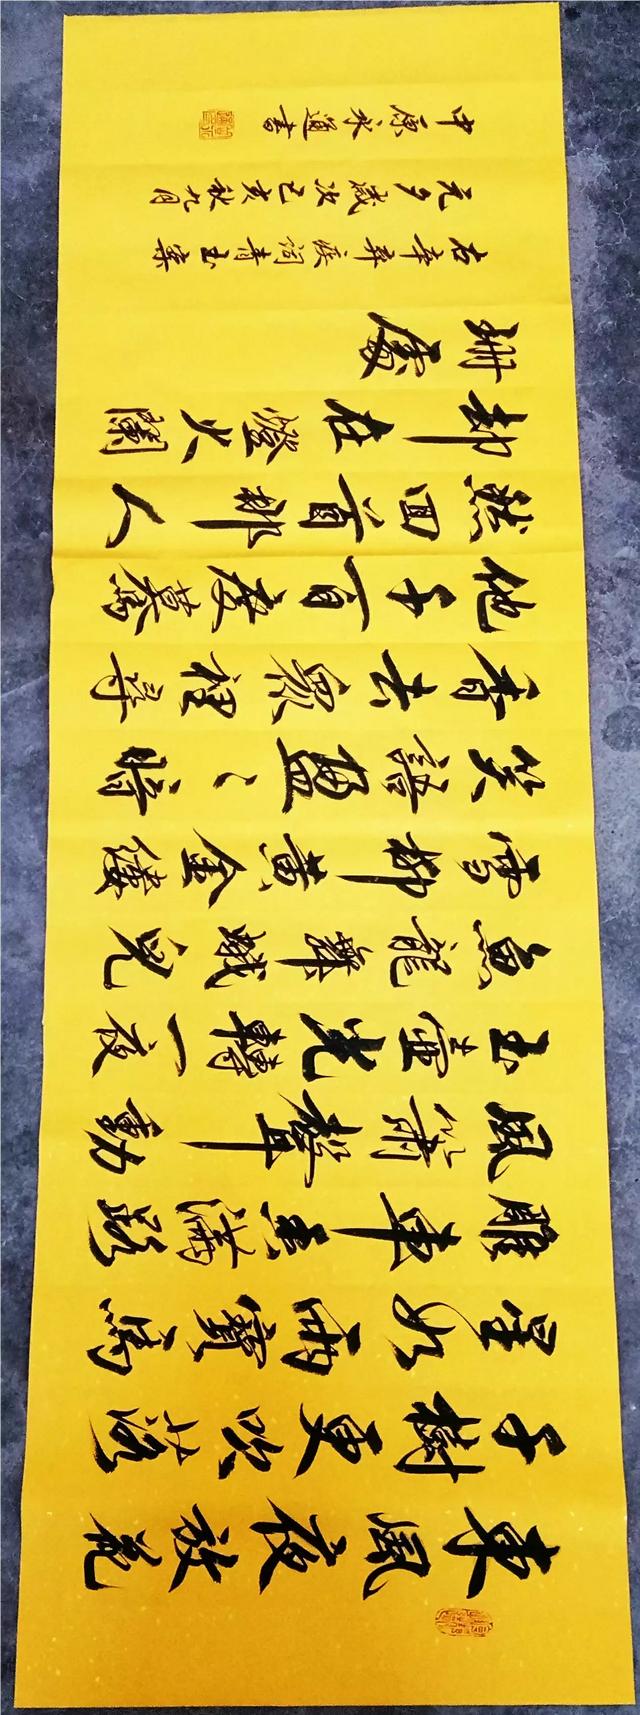 東風夜放花
千樹更吹落
星如雨寶馬
雕車香滿路
鳳簫聲動
玉壺光轉一夜
魚龍舞蛾兒
雪柳黃金縷
笑語盈〻暗
香去眾裡尋
他千百度驀
然回首那人
却在燈火闌
珊處
右辛棄疾詞青玉案
元夕歲次己亥秋九月
中原永通書